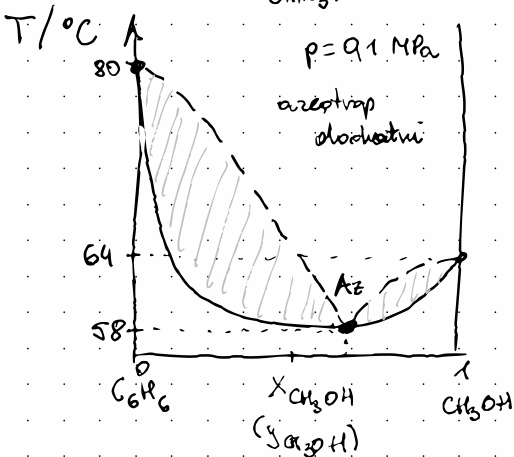 T/°C
80
p = 0,1 MPa
azeotrop
dodatni
64
Az
58
0
1
C₆H₆
X CH₃OH
CH₃OH
(y CH₃OH)